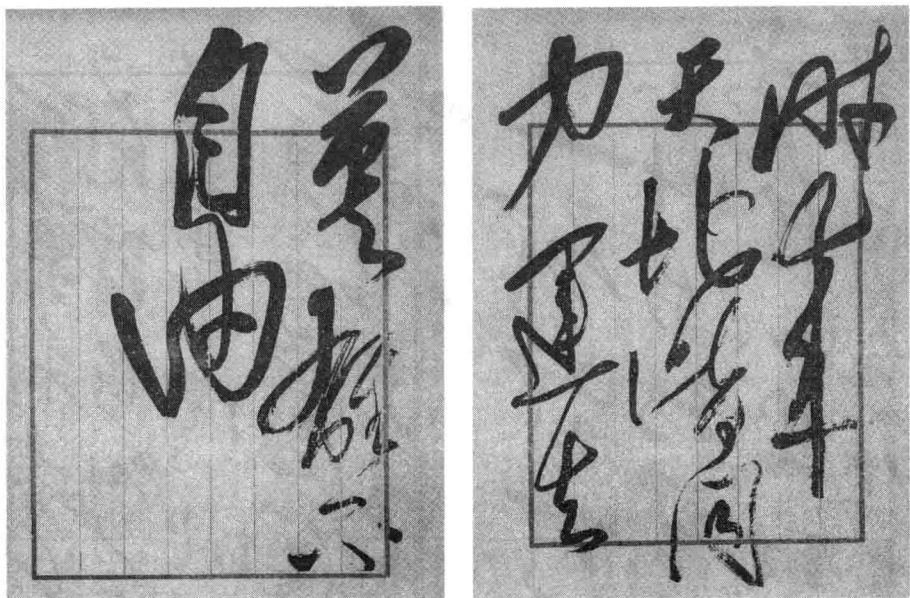 时来
天地皆同
力 运去
英雄不
自由